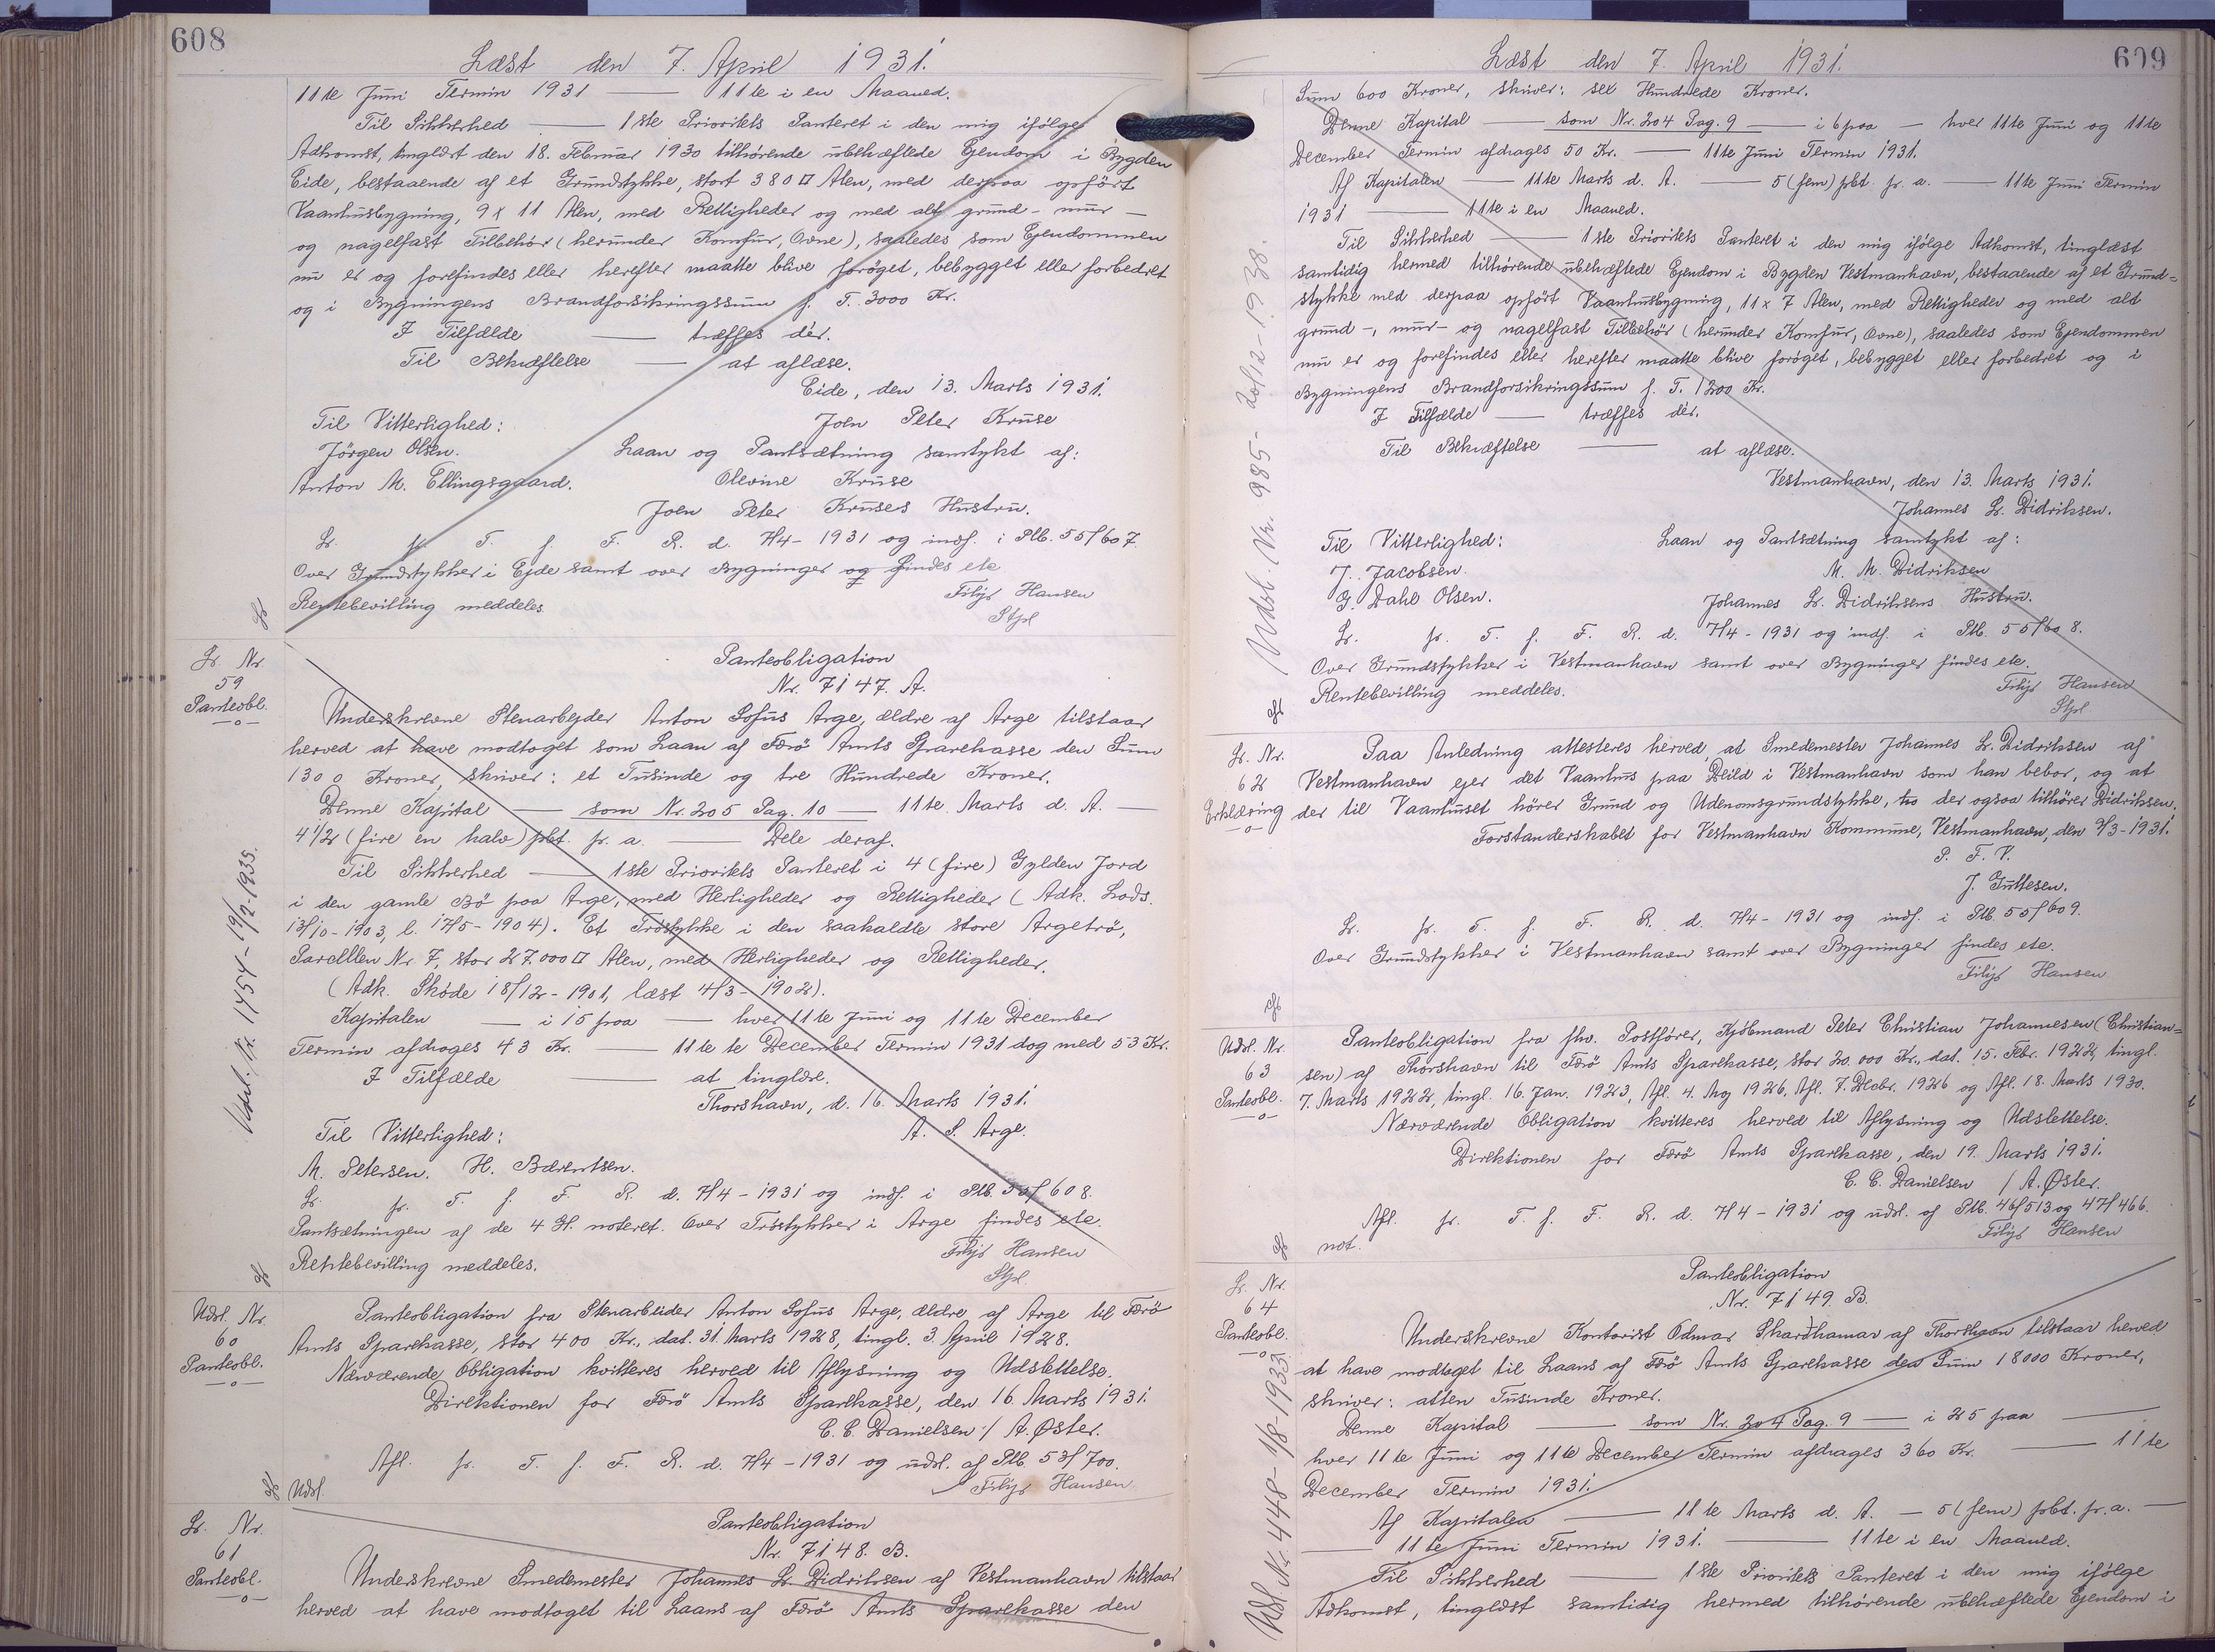 608
Læst den 7. April 1931.
11te Juni Termin 1931 — 11te i en Maaned.
Til Sikkerhed — 1ste Prioritets Panteret i den mig ifølge
Adkomst, tinglæst den 18. Februar 1930 tilhørende ubehæftede Ejendom i Bygden
Eide, bestaaende af et Grundstykke, stort 380 □ Alen, med derpaa opført
Vaaanhusbygning, 9 x 11 Alen, med Rettigheder og med alt grund- mur-
og nagelfast Tilbehør (herunder Komfur, Ovne), saaledes som Ejendommen
nu er og forefindes eller herefter maatte blive forøget, bebygget eller forbedret
og i Bygningens Brandforsikringssum p. T. 3000 Kr.
I Tilfælde — træffes dér.
Til Bekræftelse — at aflæse.
Eide, den 13. Marts 1931.
Til Vitterlighed: Joen Peter Kruse
Jörgen Olsen. Laan og Pantsætning samtykt af:
Anton M. Ellingsgaard. Olevine Kruse
Joen Peter Kruses Hustru.
Lr. fr. T. f. F. R. d. 7/4-1931 og indf. i Plb. 55/607.
Over Grundstykker i Ejde samt over Bygninger og findes ete
Rentebevilling meddeles. Filip Hansen
Stpl
Lr. Nr.
59
Panteobl.
Panteobligation
Nr. 7147. A.
Underskrevne Stenarbejder Anton Sofus Arge, ældre af Arge tilstaar
herved at have modtaget som Laan af Færø Amts Sparekasse den Sum
1300 Kroner, skriver: et Tusinde og tre Hundrede Kroner.
Denne Kapital — som Nr. 205 Pag. 10 — 11te Marts d. A. —
4 1/2 (fire en halv) pCt. pr. a. — Dele deraf.
Til Sikkerhed — 1ste Prioritets Panteret i 4 (fire) Gylden Jord
i den gamle Bø paa Arge, med Herligheder og Rettigheder (Adk. Lods.
13/10-1903, l. 17/5-1904). Et Trøstykke i den saakaldte store Argetrø,
Parcellen Nr 7, stor 27.000 □ Alen, med Herligheder og Rettigheder.
(Adk. Skøde 18/12-1901, læst 4/3-1902).
Kapitalen — i 15 paa — hver 11te Juni og 11te December
Termin afdrages 43 Kr. — 11te te December Termin 1931 dog med 53 Kr.
I Tilfælde — at tinglæse.
Thorshavn, d. 16. Marts 1931.
Til Vitterlighed: A. S. Arge.
M. Petersen. H. Bærentsen.
Lr. fr. T. f. F. R. d. 7/4-1931 og indf. i Plb. 55/608.
Pantsætningen af de 4 H. noteret. Over Trøstykker i Arge findes ete.
Rentebevilling meddeles. Filip Hansen
Stpl.
Udsl. Nr. 1454-19/2-1935.
Udsl. Nr.
60
Panteobl.
Panteobligation fra Stenarbeider Anton Sofus Arge, ældre af Arge til Færø
Amts Sparekasse, stor 400 Kr., dat. 31. Marts 1928, tingl. 3. April 1928.
Nærværende Obligation kvitteres herved til Aflysning og Udslettelse.
Direktionen for Færø Amts Sparekasse, den 16. Marts 1931.
C. C. Danielsen / A. Øster.
Afl. fr. T. f. F. R. d. 7/4-1931 og udsl. af Plb. 53/700.
Udsl. Filip Hansen
Lr. Nr.
61
Panteobl.
Panteobligation
Nr. 7148. B.
Underskrevne Smedemester Johannes Lr. Didriksen af Vestmanhavn tilstaar
herved at have modtaget til Laans af Færø Amts Sparekasse den
609
Læst den 7. April 1931.
Sum 600 Kroner, skriver: sex Hundrede Kroner.
Denne Kapital — som Nr. 204 Pag. 9 — i 6 paa — hver 11te Juni og 11te
December Termin afdrages 50 Kr. — 11te Juni Termin 1931.
Af Kapitalen — 11te Marts d. A. — 5 (fem) pCt. pr. a. — 11te Juni Termin
1931 — 11te i en Maaned.
Til Sikkerhed — 1ste Prioritets Panteret i den mig ifølge Adkomst, tinglæst
samtidig hermed tilhørende ubehæftede Ejendom i Bygden Vestmanhavn, bestaaende af et Grund=
stykke med derpaa opført Vaanhusbygning, 11 x 7 Alen, med Rettigheder og med alt
grund-, mur- og nagelfast Tilbehør (herunder Komfur, Ovne), saaledes som Ejendommen
nu er og forefindes eller herefter maatte blive forøget, bebygget eller forbedret og i
Bygningens Brandforsikringssum p. T. 1200 Kr.
I Tilfælde — træffes dér.
Til Bekræftelse — at aflæse.
Vestmanhavn, den 13. Marts 1931.
Johannes Lr. Didriksen.
Til Vitterlighed: Laan og Pantsætning samtykt af:
J. Jacobsen. M. M. Didriksen
G. Dahl Olsen. Johannes Lr. Didriksens Hustru.
Lr. fr. T. f. F. R. d. 7/4-1931 og indf. i Plb. 55/608.
Over Grundstykker i Vestmanhavn samt over Bygninger findes ete.
Rentebevilling meddeles. Filip Hansen
Stpl.
Udsl. Nr. 985-20/12-1938.
Lr. Nr.
62
Erklæring
Paa Anledning attesteres herved, at Smedemester Johannes Lr. Didriksen af
Vestmanhavn ejer det Vaanhus paa Deild i Vestmanhavn som han bebor, og at
der til Vaanhuset hører Grund og Udenomsgrundstykke, der ogsaa tilhører Didriksen.
Forstanderskabet for Vestmanhavn Kommune, Vestmanhavn, den 9/3-1931.
P. F. V.
J. Guttesen.
Lr. fr. T. f. F. R. d. 7/4-1931 og indf. i Plb. 55/609.
Over Grundstykker i Vestmanhavn samt over Bygninger findes ete.
Filip Hansen
Udsl. Nr.
63
Panteobl.
Panteobligation fra fhv. Postfører, Kjøbmand Peter Christian Johannesen (Christian=
sen) af Thorshavn til Færø Amts Sparekasse, stor 20.000 Kr., dat. 15. Febr. 1922, tingl.
7. Marts 1922, tingl. 16. Jan. 1923, Afl. 4. Maj 1926, Afl. 7. Decbr. 1926 og Afl. 18. Marts 1930.
Nærværende Obligation kvitteres herved til Aflysning og Udslettelse.
Direktionen for Færø Amts Sparekasse, den 19. Marts 1931.
C. C. Danielsen / A. Øster.
Afl. fr. T. f. F. R. d. 7/4-1931 og udsl. af Plb. 46/513 og 47/466.
not. Filip Hansen
Lr. Nr.
64
Panteobl.
Panteobligation
Nr. 7149. B.
Underskrevne Kontorist Ødmar Skarðhamar af Thorshavn tilstaar herved
at have modtaget til Laans af Færø Amts Sparekasse den Sum 18000 Kroner,
skriver: atten Tusinde Kroner.
Denne Kapital — som Nr. 204 Pag. 9 — i 25 paa —
hver 11te Juni og 11te December Termin afdrages 360 Kr. — 11te
December Termin 1931.
Af Kapitalen — 11te Marts d. A. — 5 (fem) pCt. pr. a. —
— 11te Juni Termin 1931. — 11te i en Maaned.
Til Sikkerhed — 1ste Prioritets Panteret i den mig ifølge
Adkomst, tinglæst samtidig hermed tilhørende ubehæftede Ejendom i
Udsl. Nr. 4448-1/8-1933